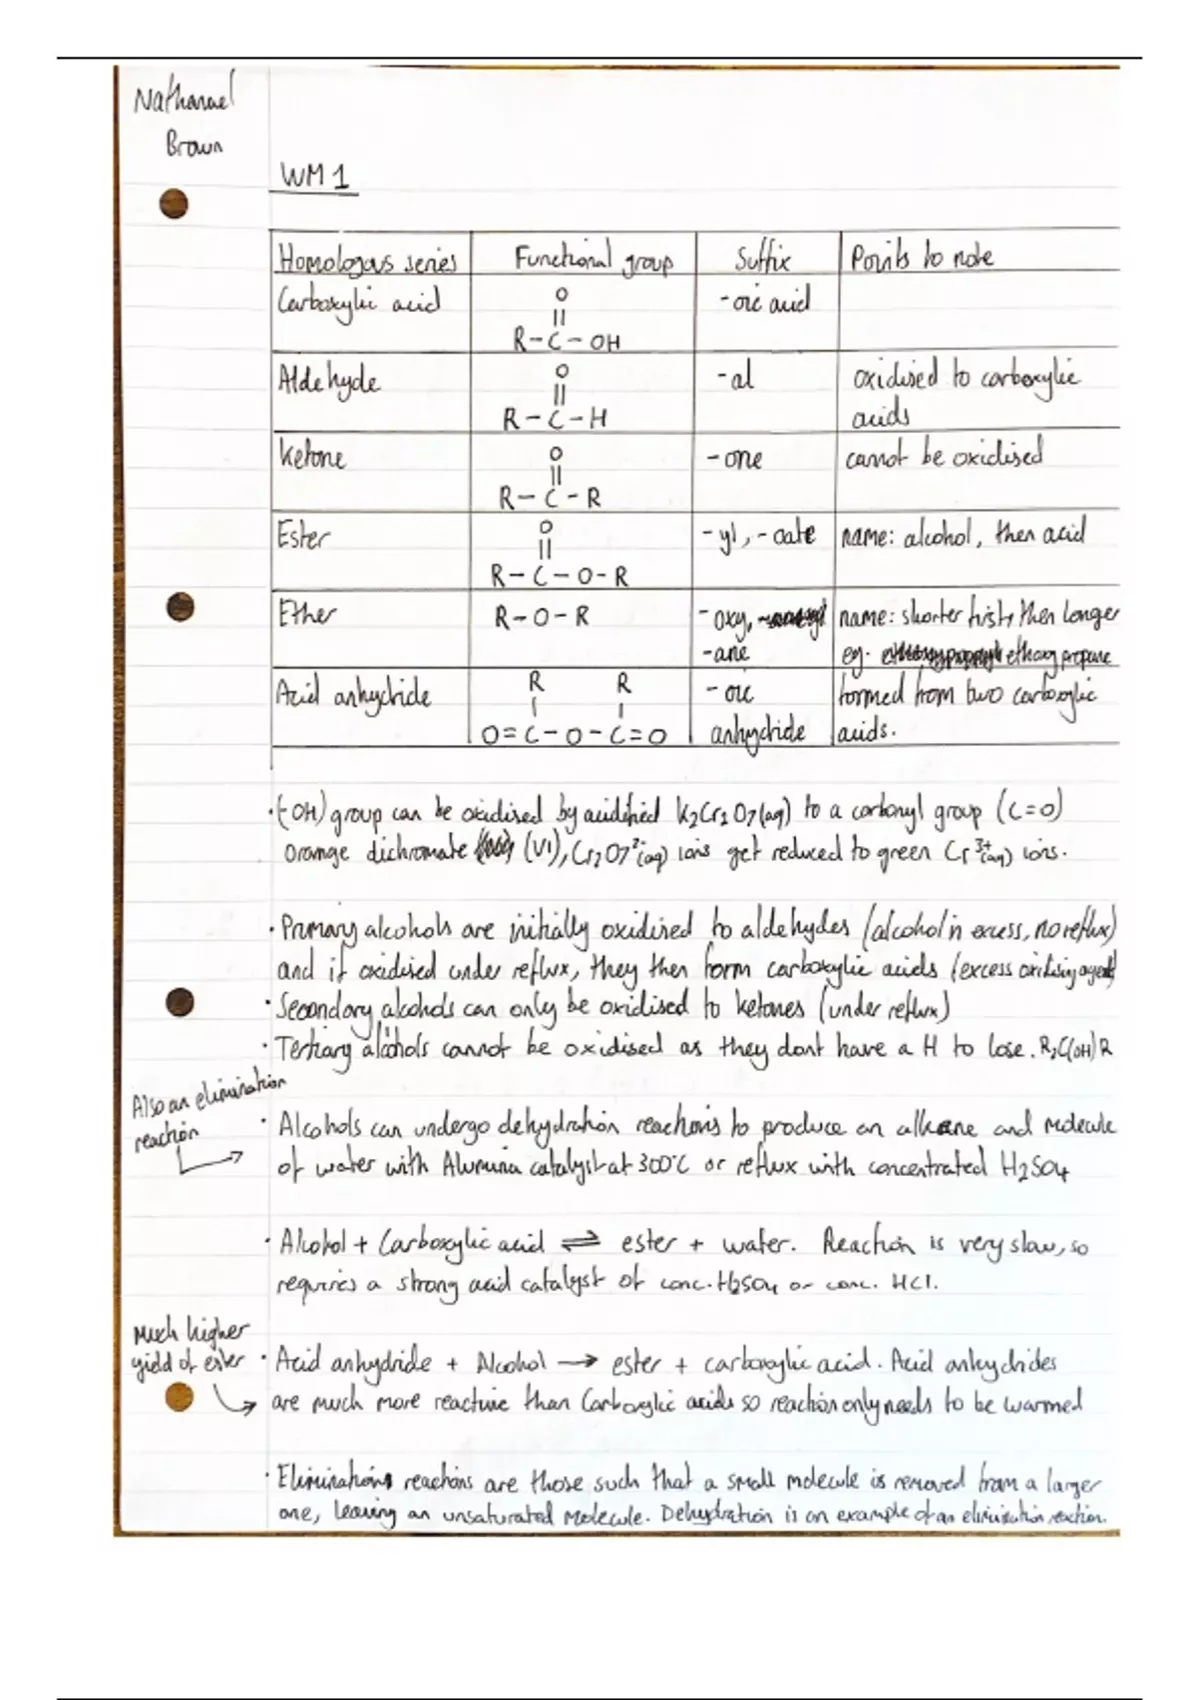 Nathanael
Brown
WM 1
Homologous series Functional group Suffix Points to note
Carboxylic acid O - oic acid
||
R-C-OH
Aldehyde O - al oxidised to carboxylic
||
R-C-H acids
Ketone O - one cannot be oxidised
||
R-C-R
Ester O - yl, - oate name: alcohol, then acid
||
R-C-O-R
Ether R-O-R - oxy, name: shorter first, then longer
-ane eg. ethoxypropane
Acid anhydride R R - oic formed from two carboxylic
| |
O=C-O-C=O anhydride acids.
· (-OH) group can be oxidised by acidified K2Cr2O7(aq) to a carbonyl group (C=O)
Orange dichromate (VI), Cr2O7²⁻(aq) ions get reduced to green Cr³⁺(aq) ions.
· Primary alcohols are initially oxidised to aldehydes (alcohol in excess, no reflux)
and if oxidised under reflux, they then form carboxylic acids (excess oxidising agent)
· Secondary alcohols can only be oxidised to ketones (under reflux)
· Tertiary alcohols cannot be oxidised as they dont have a H to lose. R2C(OH)R
Also an elimination
reaction
· Alcohols can undergo dehydration reactions to produce an alkene and molecule
of water with Alumina catalyst at 300°C or reflux with concentrated H2SO4
· Alcohol + Carboxylic acid ⇌ ester + water. Reaction is very slow, so
requires a strong acid catalyst of conc. H2SO4 or conc. HCl.
Much higher
yield of ester
· Acid anhydride + Alcohol → ester + carboxylic acid. Acid anhydrides
are much more reactive than Carboxylic acids so reaction only needs to be warmed
· Eliminations reactions are those such that a small molecule is removed from a larger
one, leaving an unsaturated molecule. Dehydration is an example of an elimination reaction.